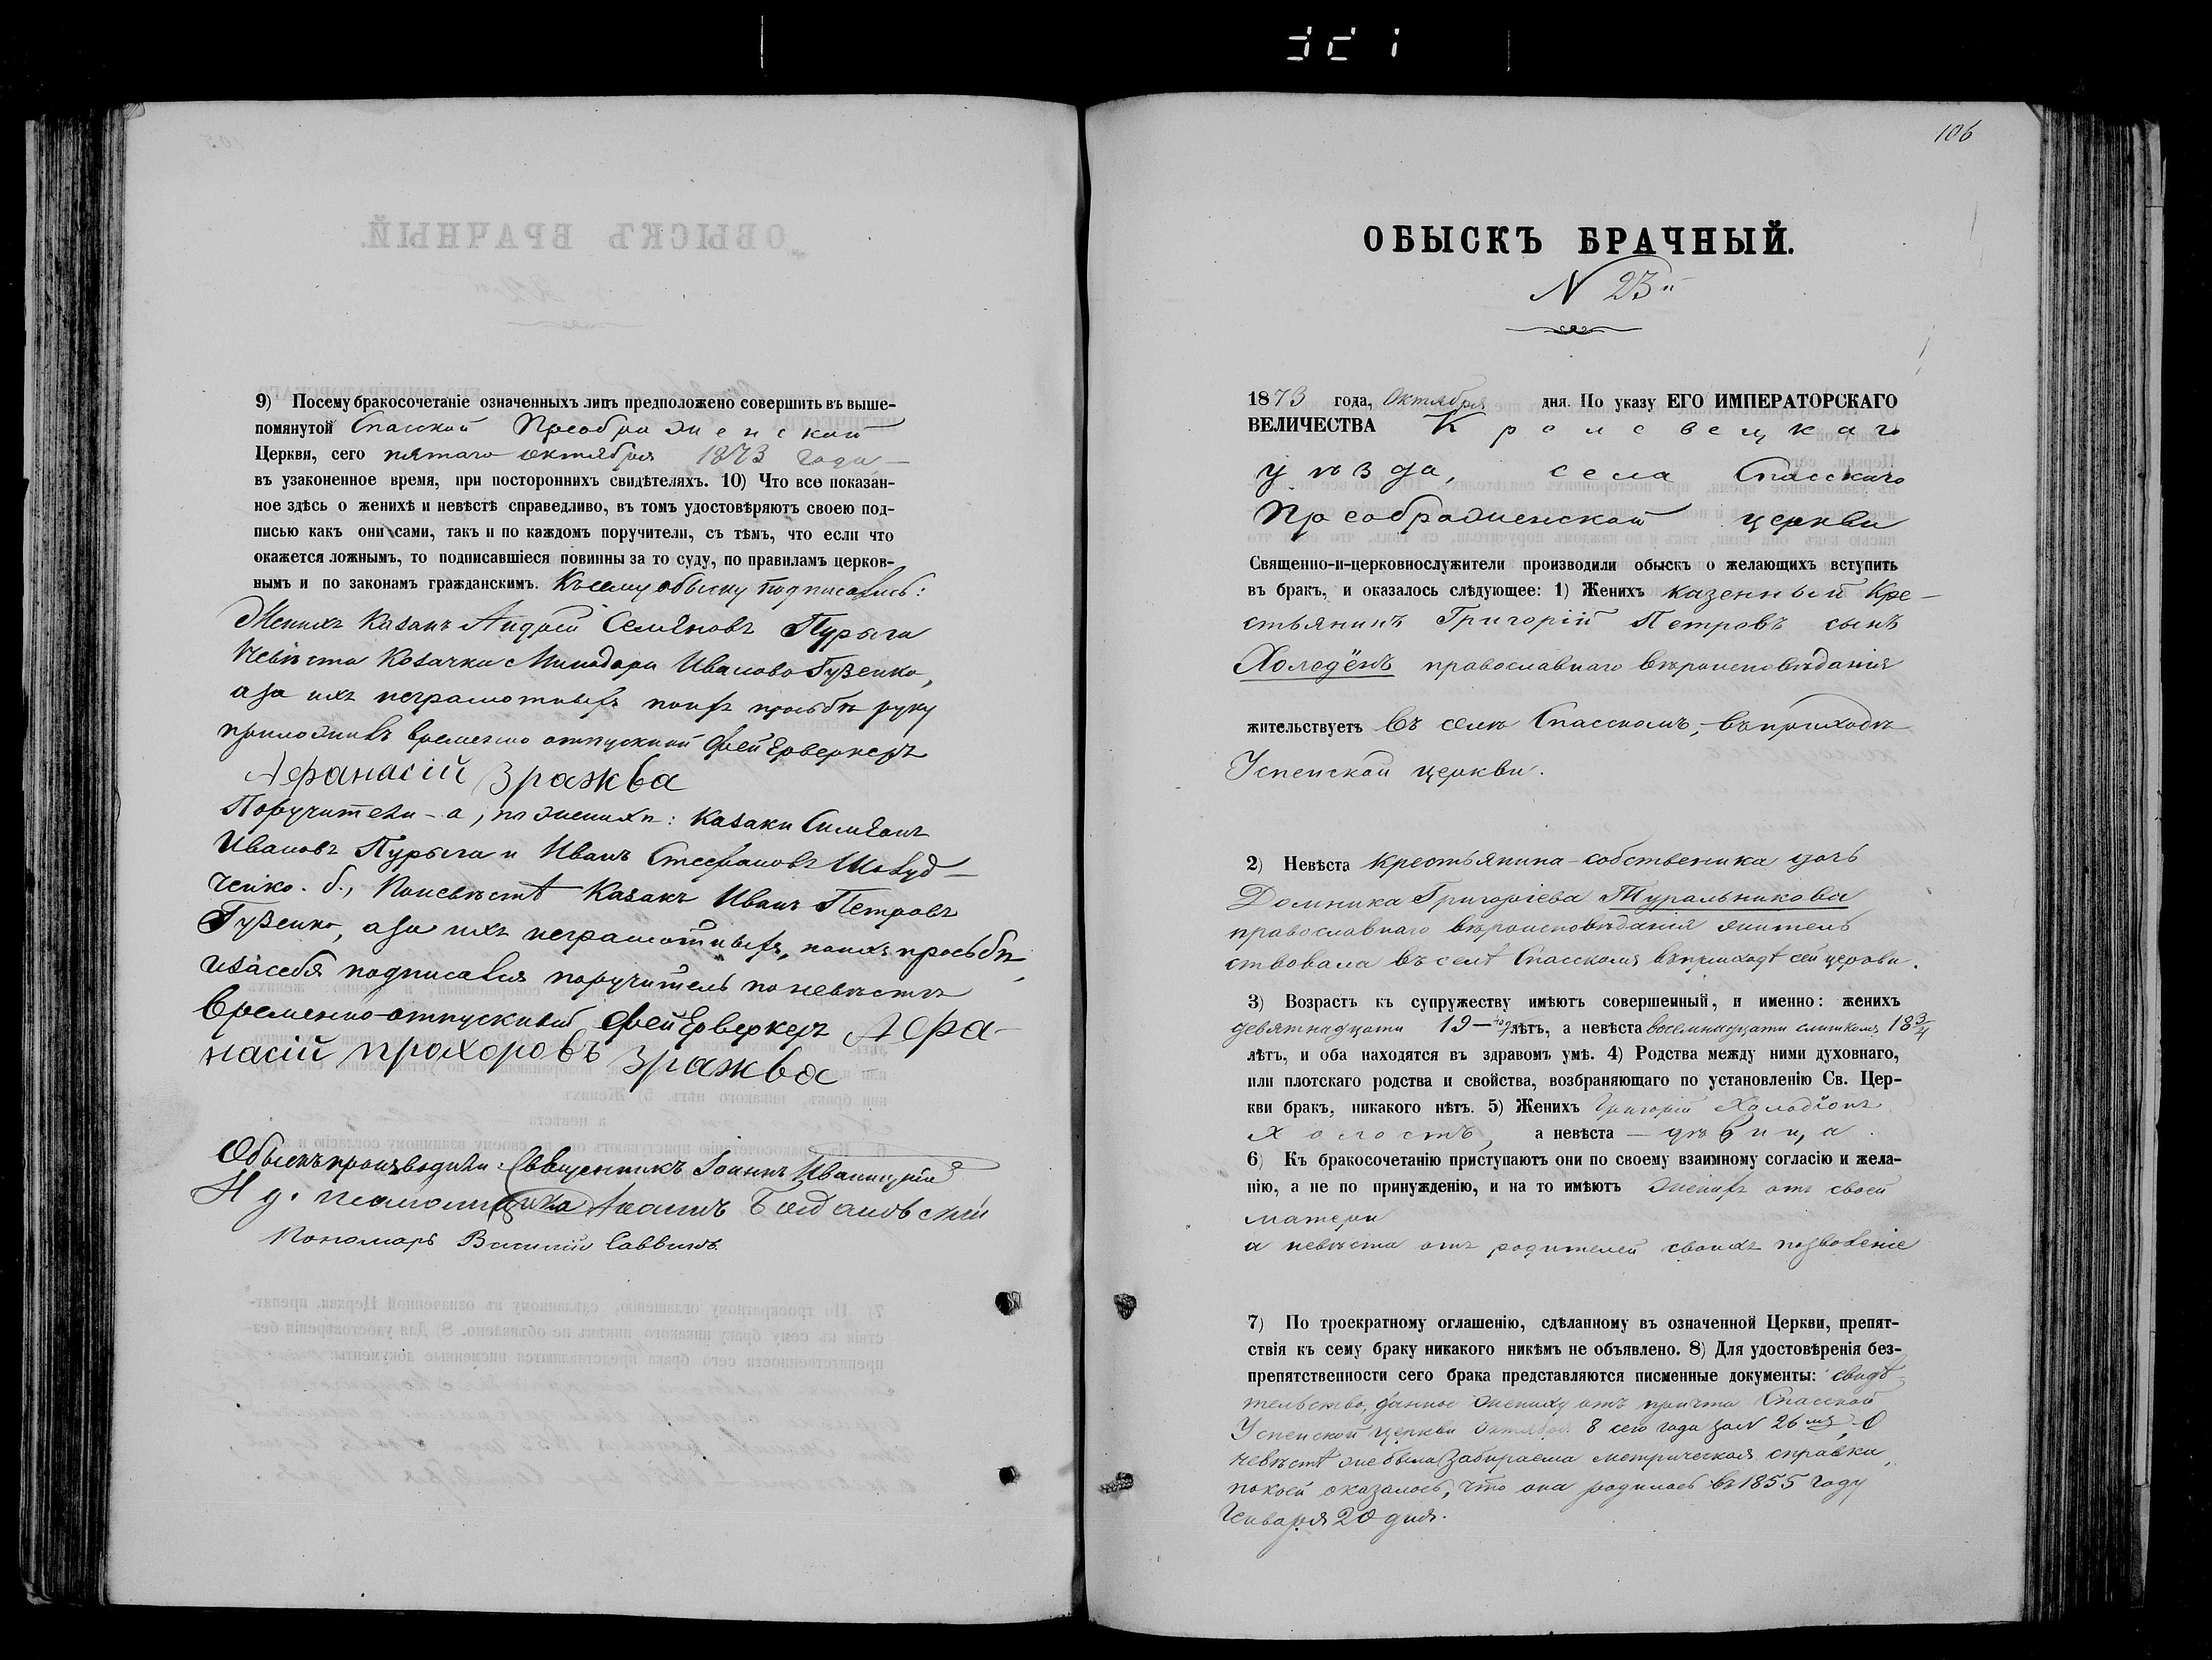 9) Посему бракосочетаніе означенныхъ лицъ предположено совершить въ выше-
помянутой Спасской Преображенской
Церкви, сего пятаго октября 1873 года
въ узаконенное время, при постороннихъ свидѣтеляхъ. 10) Что все показан-
ное здѣсь о женихѣ и невѣстѣ справедливо, въ томъ удостовѣряютъ своею под-
писью какъ они сами, такъ и по каждомъ поручители, съ тѣмъ, что если что
окажется ложнымъ, то подписавшіеся повинны за то суду, по правиламъ церков-
нымъ и по законамъ гражданскимъ. Къ сему обыску подписались:
Женихъ Казакъ Андрей Семеновъ Пурыга
Невѣста Козачка Минодора Иванова Гузенко,
а за ихъ неграмотныхъ поихъ прозьбѣ руку
приложилъ временно отпускной фейерверкеръ
Афанасій Зражва
Поручители - а, по женихѣ: Казаки Симеонъ
Ивановъ Пурыга и Иванъ Стефановъ
б., Поневѣстѣ Казакъ Иванъ Петровъ
Гузенко, а за ихъ неграмотныхъ, поихъ прозьбѣ,
изасебя подписался поручитель по невѣстѣ
Временно-отпускной фейерверкеръ Афа-
насій прохоровъ Зражва
Обыскъ производили: Священникъ Іоаннъ
И д. псаломщика Іоаннъ
Пономарь Василий Саввинъ.
106
ОБЫСКЪ БРАЧНЫЙ.
N 23й
1873 года, Октября дня. По указу ЕГО ИМПЕРАТОРСКАГО
ВЕЛИЧЕСТВА Кролевецкаго
уѣзда, села Спасскаго
Преображенской церкви
Священно-и-церковнослужители производили обыскъ о желающихъ вступить
въ бракъ, и оказалось слѣдующее: 1) Женихъ казенный Кре-
стьянинъ Григорій Петровъ сынъ
Холодёнъ православнаго вѣроисповѣданія
жительствуетъ въ селѣ Спасскомъ, въ приходѣ
Успенской церкви.
2) Невѣста крестьянина-собственика дочь
Домника Григоріева Туральникова
православнаго вѣроисповѣданія житель
ствовала въ селѣ Спасскомъ въ приходѣ сей церкви.
3) Возрастъ къ супружеству имѣютъ совершенный, и именно: женихъ
девятнадцати 19 лѣтъ, а невѣста восемнадцати слишкомъ 18 3/4
лѣтъ, и оба находятся въ здравомъ умѣ. 4) Родства между ними духовнаго,
или плотскаго родства и свойства, возбраняющаго по установленію Св. Цер-
кви бракъ, никакого нѣтъ. 5) Женихъ Григорій Холодіонъ
Холостъ, а невѣста — дѣвица.
6) Къ бракосочетанію приступаютъ они по своему взаимному согласію и жела-
нію, а не по принужденію, и на то имѣютъ женихъ отъ своей
матери
а невѣста отъ родителей своихъ позволеніе
7) По троекратному оглашенію, сдѣланному въ означенной Церкви, препят-
ствія къ сему браку никакого никѣмъ не объявлено. 8) Для удостовѣренія без-
препятственности сего брака представляются писменные документы: свидѣ-
тельство, данное жениху отъ причта Спасской
Успенской церкви октября 8 сего года за N 26мъ, О
невѣстѣ же была забираема метрическая справка,
покоей оказалось, что она родилась въ 1855 году
Генваря 20 дня.